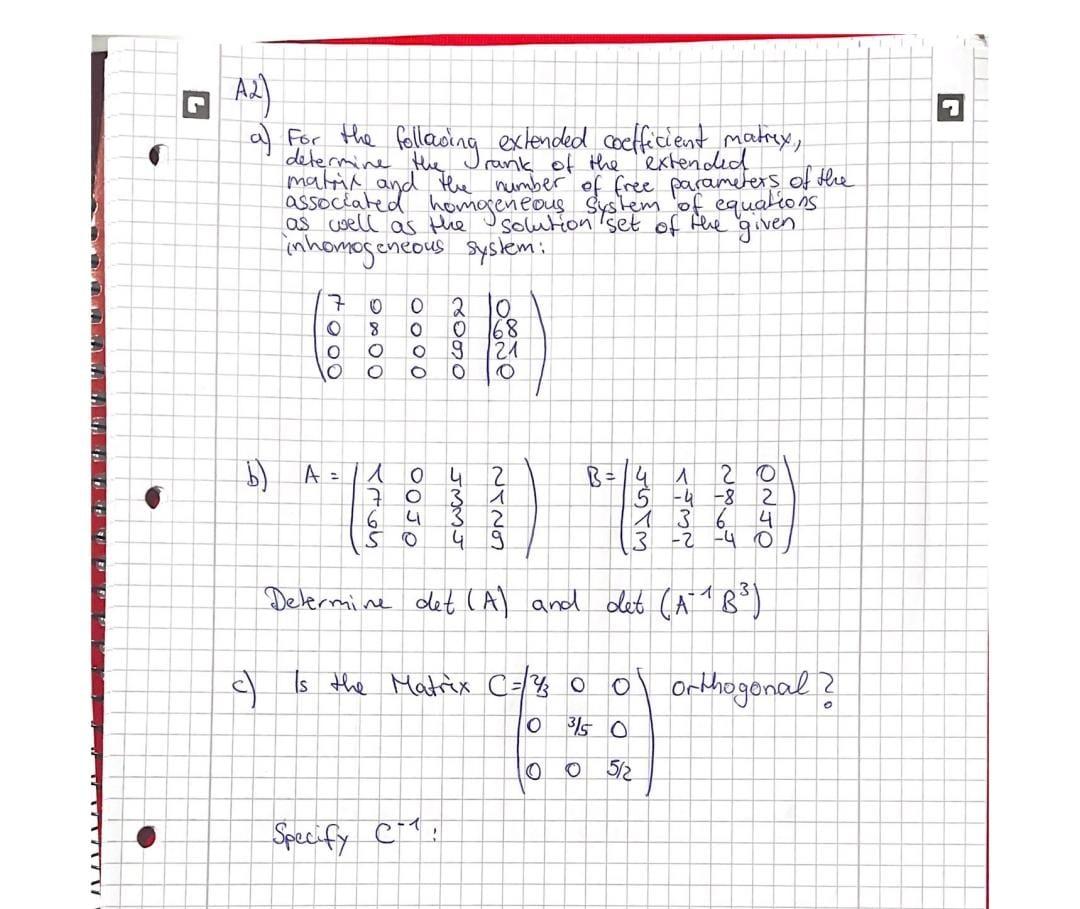 A2)
a) For the following extended coefficient matrix,
determine the rank of the extended
matrix and the number of free parameters of the
associated homogeneous system of equations
as well as the solution set of the given
inhomogeneous system:
7 0 0 2 | 0
0 8 0 0 | 68
0 0 0 9 | 21
0 0 0 0 | 0
b) A = ( 1 0 4 2 ) B = ( 4 1 2 0 )
7 0 3 1 5 -4 -8 2
6 4 3 2 1 3 6 4
5 0 4 9 3 -2 -4 0
Determine det (A) and det (A⁻¹ B³)
c) Is the Matrix C = ( 2/3 0 0 ) orthogonal?
0 3/5 0
0 0 5/2
Specify C⁻¹: